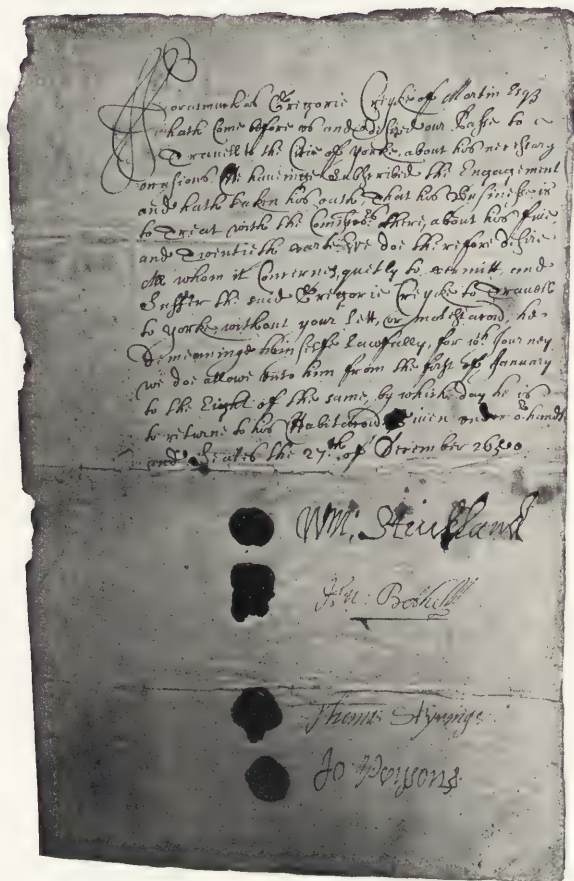 Forasmuch as Gregorie Creyke of Martin Esqr
hath Come before us and desired our Passe to
Travell to the Citie of Yorke, about his necessary
occasions He haveinge Subscribed the Engagement
and hath taken his oath, That his Businesse is
to Treat with the Comissrs there, about his five
and Twentieth parte We doe therefore desire
All whom it Concernes, quietly to permitt, and
Suffer the said Gregorie Creyke to Travell
to Yorke without your lett, or molestacion, he
Demeaninge himselfe Lawfully, for wch Journey
we doe allowe unto him from the first of January
to the Eight of the same, by which day he is
to returne to his Habitacion Given under or hands
and Seales the 27th of December 1650.
Wm. Strickland
Hu: Bethell
Thomas Styringe
Jo Parsons